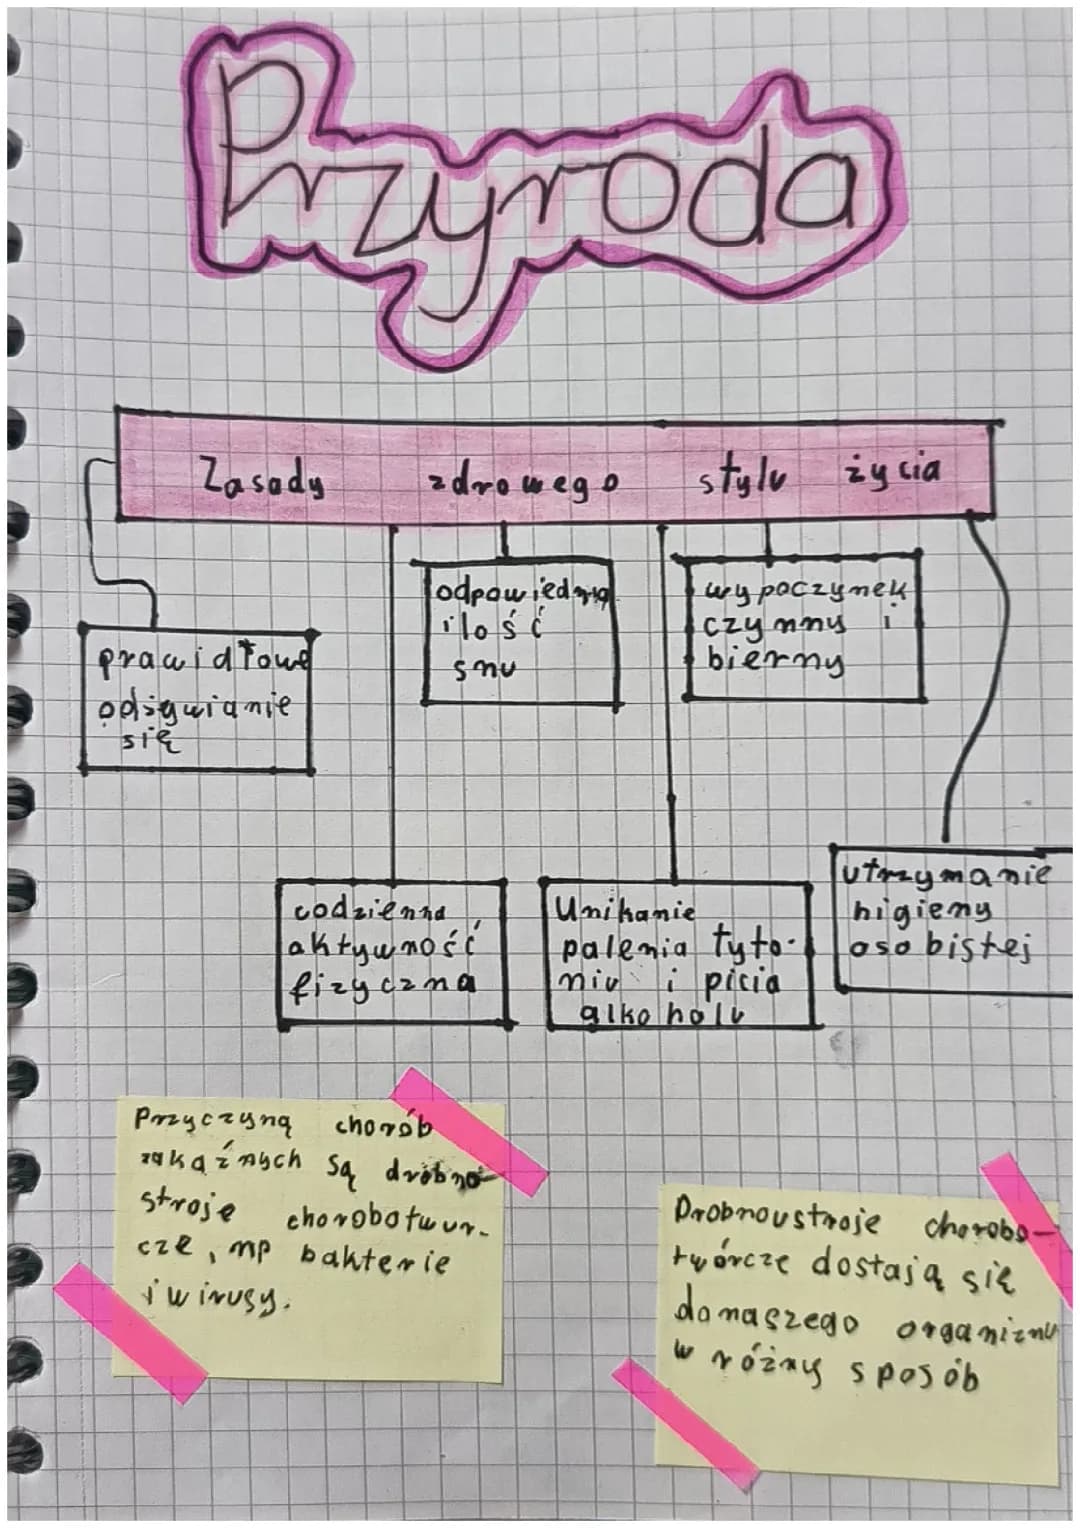 Przyroda
Zasady zdrowego stylu życia
prawidłowe
odżywianie
się
odpowiednia
ilość
snu
wypoczynek
czynny i
bierny
codzienna
aktywność
fizyczna
Unikanie
palenia tyto-
niu i picia
alkoholu
utrzymanie
higieny
osobistej
Przyczyną chorób
zakaźnych są drobno-
stroje chorobotwur-
cze, np bakterie
i wirusy.
Drobnoustroje chorobo-
twórcze dostają się
do naszego organizmu
w różny sposób